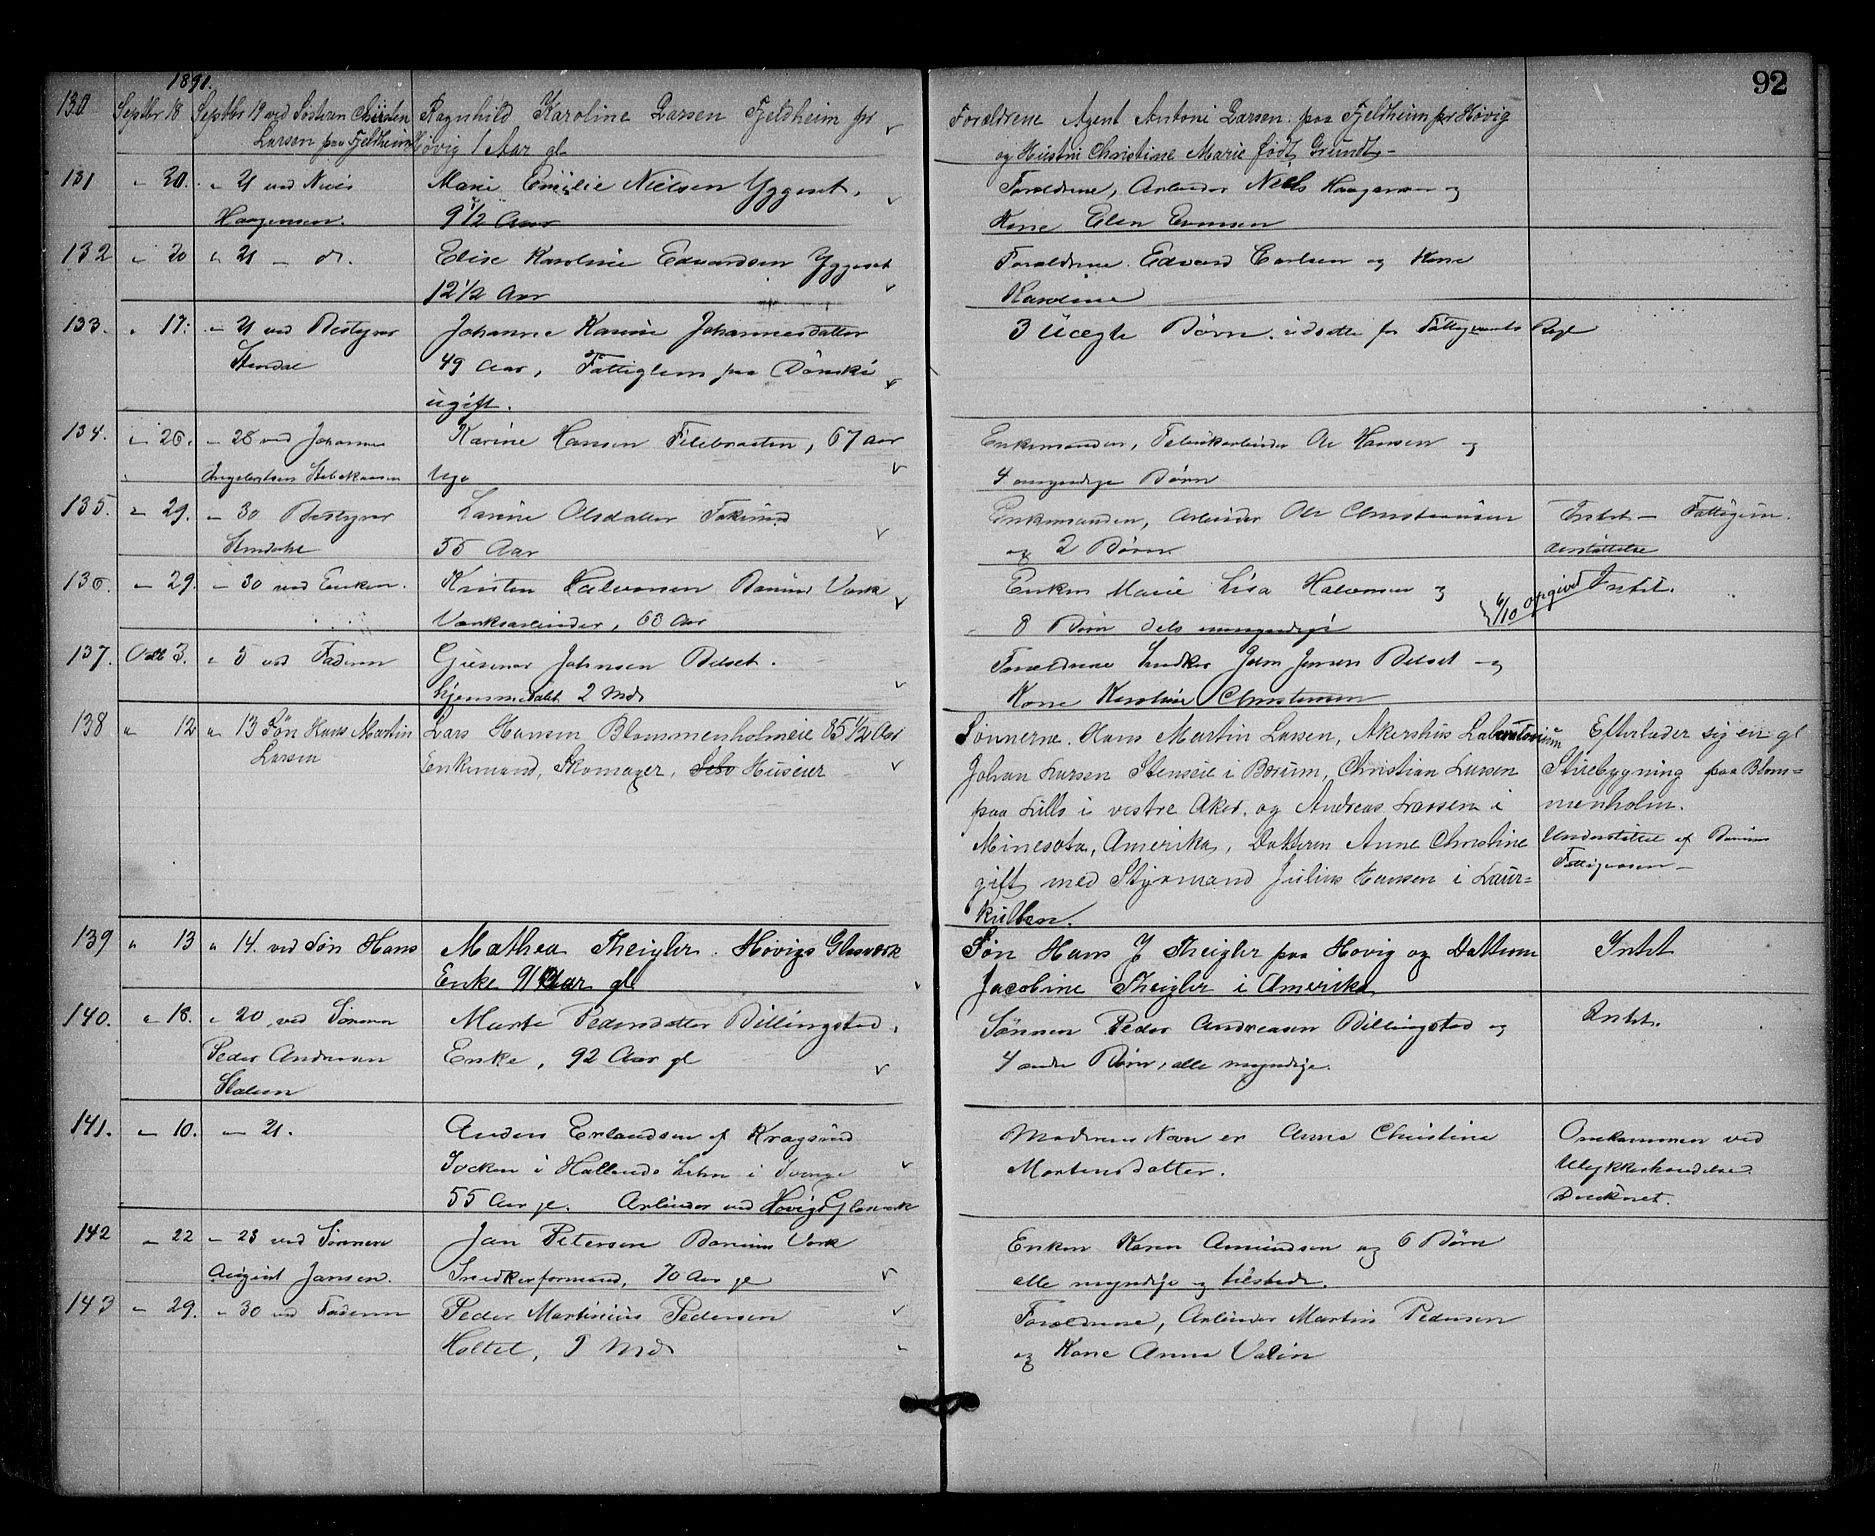 92
1891.
130 Septbr 18 Septbr 19 ved Søstren Christen Ragnhild Karoline Larsen Fjeldheim pr Forældrene Agent Antoni Larsen paa Fjeldheim pr Høvig
Larsen paa Fjeldheim Høvig 1 Aar gl. og Hustru Christine Marie født Grundt -
131 " 20. " 21 ved Niels Marie Emilie Nielsen Yggeset. Forældrene, Arbeider Niels Haagensen og
Haagensen. 9 1/2 Aar Kone Elen Evensen
132 " 20 " 21 - do. Elise Karoline Edvardsen Yggeset Forældrene Edvard Carlsen og Kone
12 1/2 Aar Karoline
133. " 17. " 21 ved Bestyrer Johanne Karine Johannesdatter 3 Uægte Børn. udsatte for Fattigvæsenets Regl
Stendal 49 Aar, Fattiglem paa Dønski
ugift.
134. " 26. " 28 ved Johannes Karine Hansen Filebraaten, 67 Aar Enkemanden, Fabrikarbeider Ole Hansen og
Ingebretsen Stabekaasen 4 myndige Børn
135. " 29. " 30 Bestyrer Larine Olsdatter Toverud Enkemanden, Arbeider Ole Christiansen Intet - Fattigun
55 Aar og 2 Børn derstøttelse
136. " 29. " 30 ved Enken. Kristen Halvorsen Bærums Værk Enken Marie Lisa Halvorsen og 6/10 opgivet Intet.
Værksarbeider, 63 Aar 8 Børn dels umyndige
137. Octb 3. " 5 ved Faderen Gusenor Johnsen Belset. Forældrene Snedker John Jensen Belset og
hjemmedøbt 2 Md. Kone Karoline Christensen
138 " 12 " 13 Søn Hans Martin Lars Hansen Blommenholmeie 85 1/2 Aar Sønnerne. Hans Martin Larsen, Akershus Laboratorium Efterlader sig en gl
Larsen Enkemand, Skomager, Huseier Johan Larsen Stenseie i Bærum, Christian Larsen Stuebygning paa Blom=
paa Lills i vestre Aker. og Andreas Larsen i menholm.
Minesota, Amerika, Datteren Anne Christine Understøttet af Bærums
gift med Styrmand Julius Hansen i Laur= Fattigvæsen -
kullen.
139 " 13 " 14. ved Søn Hans Mathea Theigler. Høvigs Glasværk Søn Hans J Theigler paa Høvig og Datteren Intet
Enke 91 Aar gl Jacobine Theigler i Amerika
140. " 18. " 20 ved Sønnen Marte Pedersdatter Billingstad, Sønnen Peder Andreasen Billingstad og Intet.
Peder Andreasen Enke, 92 Aar gl 4 andre Børn, alle myndige.
141. " 10. " 21. Anders Erlandsen af Kragsund Moderens Navn er Anna Christina Omkommen ved
Socken i Hallands Lehn i Sverige Mortensdatter. Ulykkeshændelse
55 Aar gl. Arbeider ved Høvigs Glasværk Druknet.
142 " 22 " 23 ved Sønnen Jan Petersen Bærums Værk Enken Karen Amundsen og 6 Børn
August Jansen. Snedkerformand, 70 Aar gl alle myndige og tilstede.
143 " 29. " 30 ved Faderen Peder Martinius Pedersen Forældrene, Arbeider Martin Pedersen
Holtet, 9 Md og Kone Anna Valin